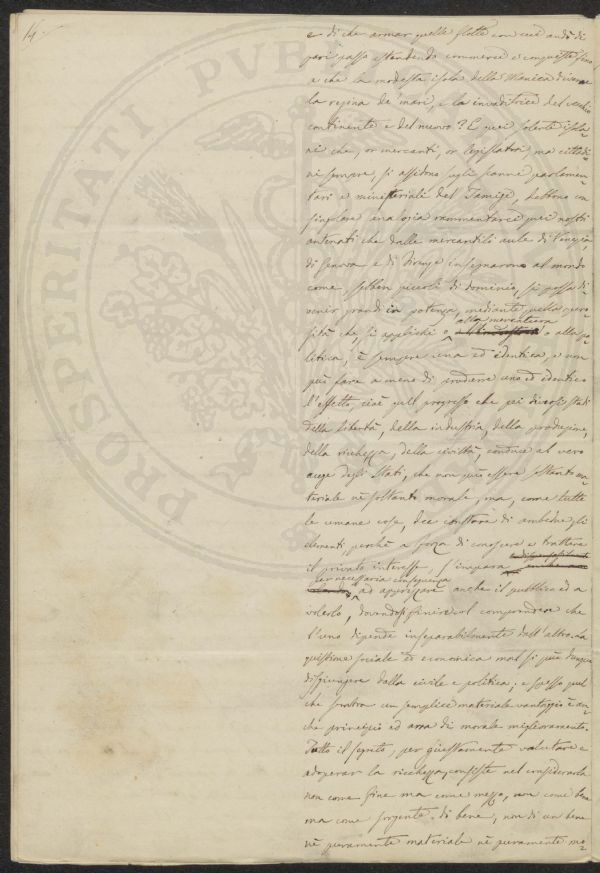 14.
e di che armar quelle flotte con cui andò di
pari passo estendendo commercio e conquiste fino
a che la modesta isola della Manica divenne
la regina de' mari, e la invaditrice del vecchio
continente e del nuovo? E quei solerti isola
ni che, or mercanti, or legislatori, ma cittadi-
ni sempre, si assidono sugli scanni parlamen-
tari e ministeriali del Tamigi, debbono con
singolare analogia rammentarci quei nostri
antenati che dalle mercantili aule di Venezia,
di Genova e di Firenze insegnarono al mondo
come, sebben piccoli di dominio, si possa di-
venir grandi in potenza, mediante quella ope-
sità che, si applichi o alla mercatura o alla po-
litica, è sempre una ed identica, e non
può fare a meno di produrre uno ed identico
l'effetto, cioè quel progresso che pei diversi stadi
della libertà, della industria, della produzione,
della ricchezza, della civiltà, conduce al vero
auge degli Stati, che non può essere soltanto ma-
teriale nè soltanto morale, ma, come tutte
le umane cose, dee constare di ambedue gli
elementi, perchè a forza di conoscere e trattare
il privato interesse, s'impara
per necessaria conseguenza
ad apprezzare anche il pubblico ed a
volerlo, dovendosi finire col comprendere che
l'uno dipende inseparabilmente dall'altro. La
quistione sociale ed economica mal si può dunque
disgiungere dalla civile e politica; e spesso quel
che sembra un semplice materiale vantaggio è an-
che principio ed arra di morale miglioramento.
Tutto il segreto, per giustamente valutare e
adoperar la ricchezza, consiste nel considerarla
non come fine ma come mezzo, non come bene
ma come sorgente di bene, non di un bene
nè puramente materiale nè puramente mo-
PROSPERITATI PUB